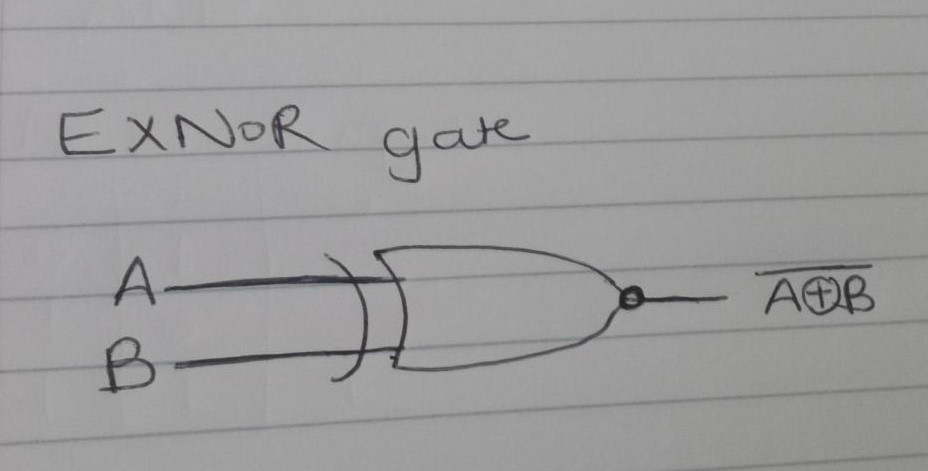 EXNOR gate
A
B
A⊕B̅